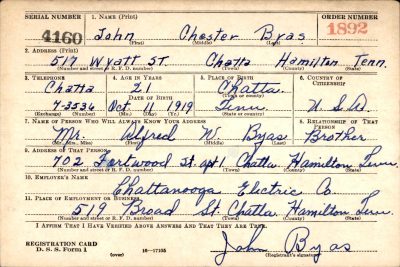 SERIAL NUMBER 1. NAME (Print) ORDER NUMBER
4160 John Chester Byas 1892
(First) (Middle) (Last)
2. ADDRESS (Print)
517 Wyatt St. Chatta Hamilton Tenn.
(Number and street or R. F. D. number) (Town) (County) (State)
3. TELEPHONE 4. AGE IN YEARS 5. PLACE OF BIRTH 6. COUNTRY OF CITIZENSHIP
Chatta 21 Chatta.
DATE OF BIRTH (Town or county)
7-3536 Oct 11 1919 Tenn U.S.A.
(Exchange) (Number) (Mo.) (Day) (Yr.) (State or country)
7. NAME OF PERSON WHO WILL ALWAYS KNOW YOUR ADDRESS 8. RELATIONSHIP OF THAT PERSON
Mr. Alfred W. Byas Brother
(Mr., Mrs., Miss) (First) (Middle) (Last)
9. ADDRESS OF THAT PERSON
702 Fortwood St. apt 1 Chatta. Hamilton Tenn.
(Number and street or R. F. D. number) (Town) (County) (State)
10. EMPLOYER'S NAME
Chattanooga Electric Co.
11. PLACE OF EMPLOYMENT OR BUSINESS
519 Broad St. Chatta. Hamilton Tenn.
(Number and street or R. F. D. number) (Town) (County) (State)
I AFFIRM THAT I HAVE VERIFIED ABOVE ANSWERS AND THAT THEY ARE TRUE.
REGISTRATION CARD
D. S. S. Form 1 (over) 16—17105 John Byas
(Registrant's signature)